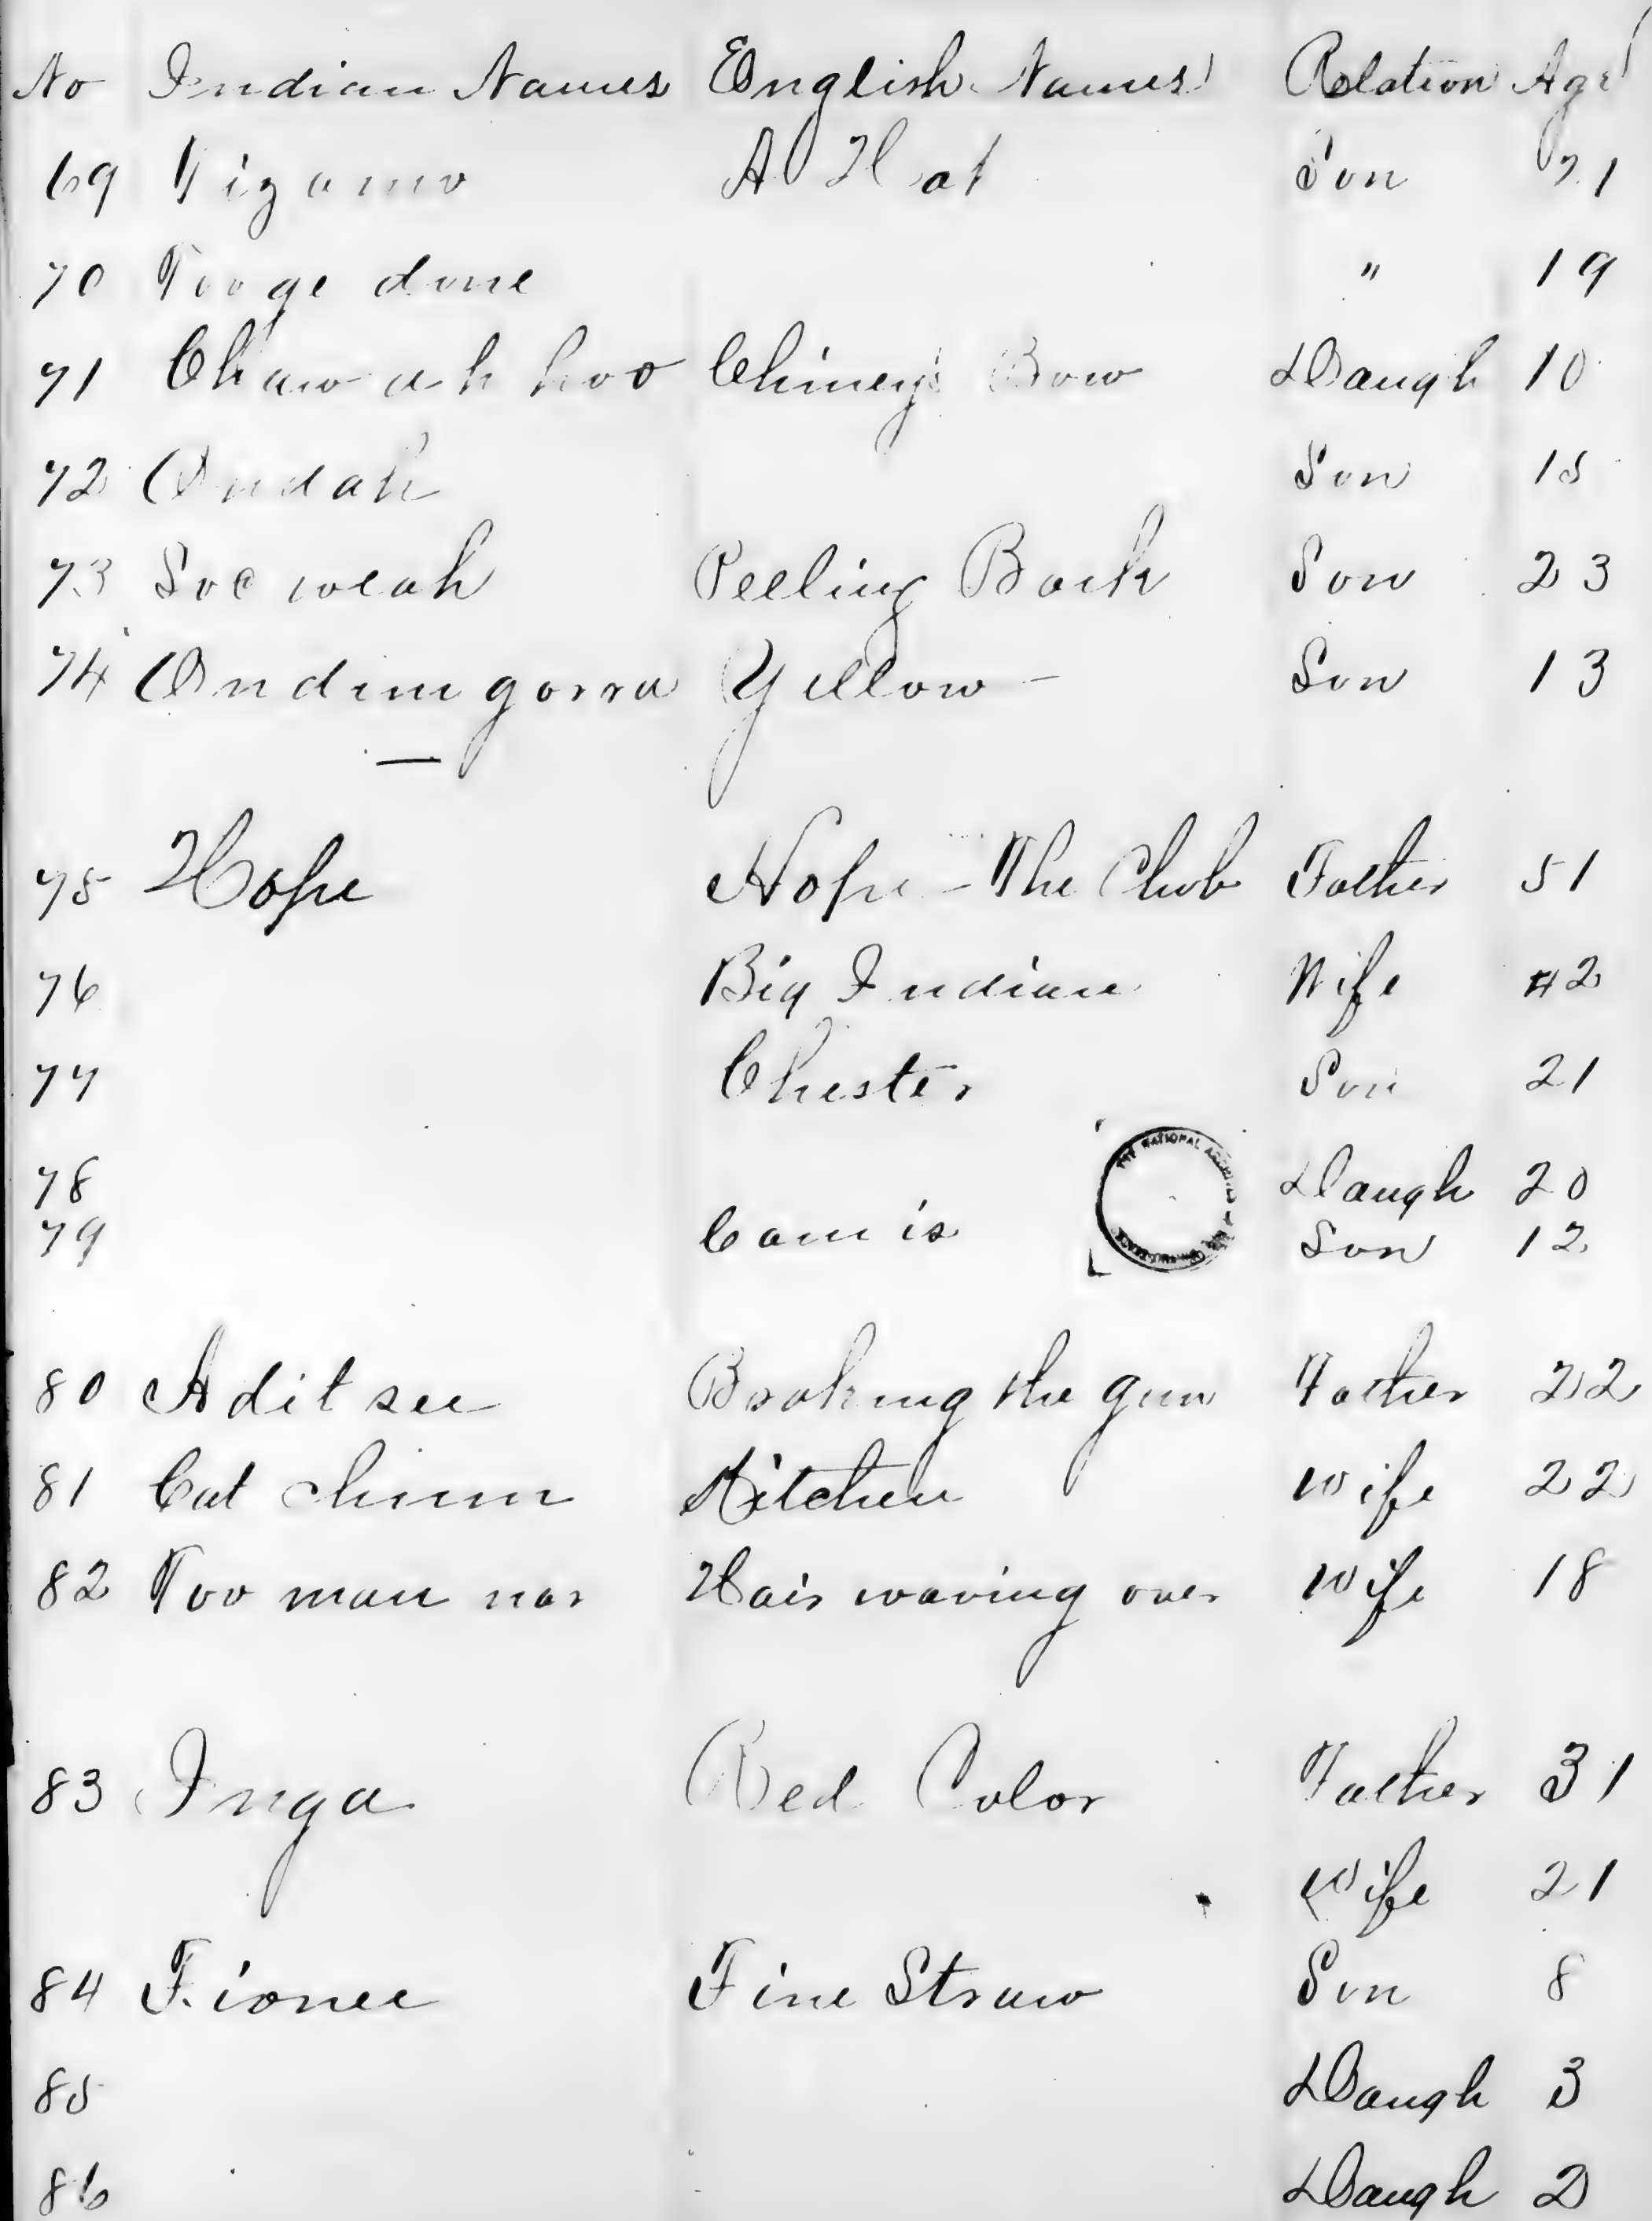 No Indian Names English Names Relation Age
69 Tizamo A Hat Son 21
70 Tooge done " 19
71 Chaw ah hoo Chiney's Bow Daugh 10
72 Ondah Son 15
73 Soc weah Peeling Bark Son 23
74 Ondimgorra Yellow Son 13
75 Hope Hope - The Club Father 51
76 Big Indian Wife 42
77 Chester Son 21
78 Daugh 20
79 Camis Son 12
THE NATIONAL ARCHIVES
80 Adit see the gun Father 22
81 Cat chinm Kitchen Wife 22
82 Too man nar Hair waving over Wife 18
83 Inga Red Color Father 31
Wife 21
84 Fionee Fine Straw Son 8
85 Daugh 3
86 Daugh 2